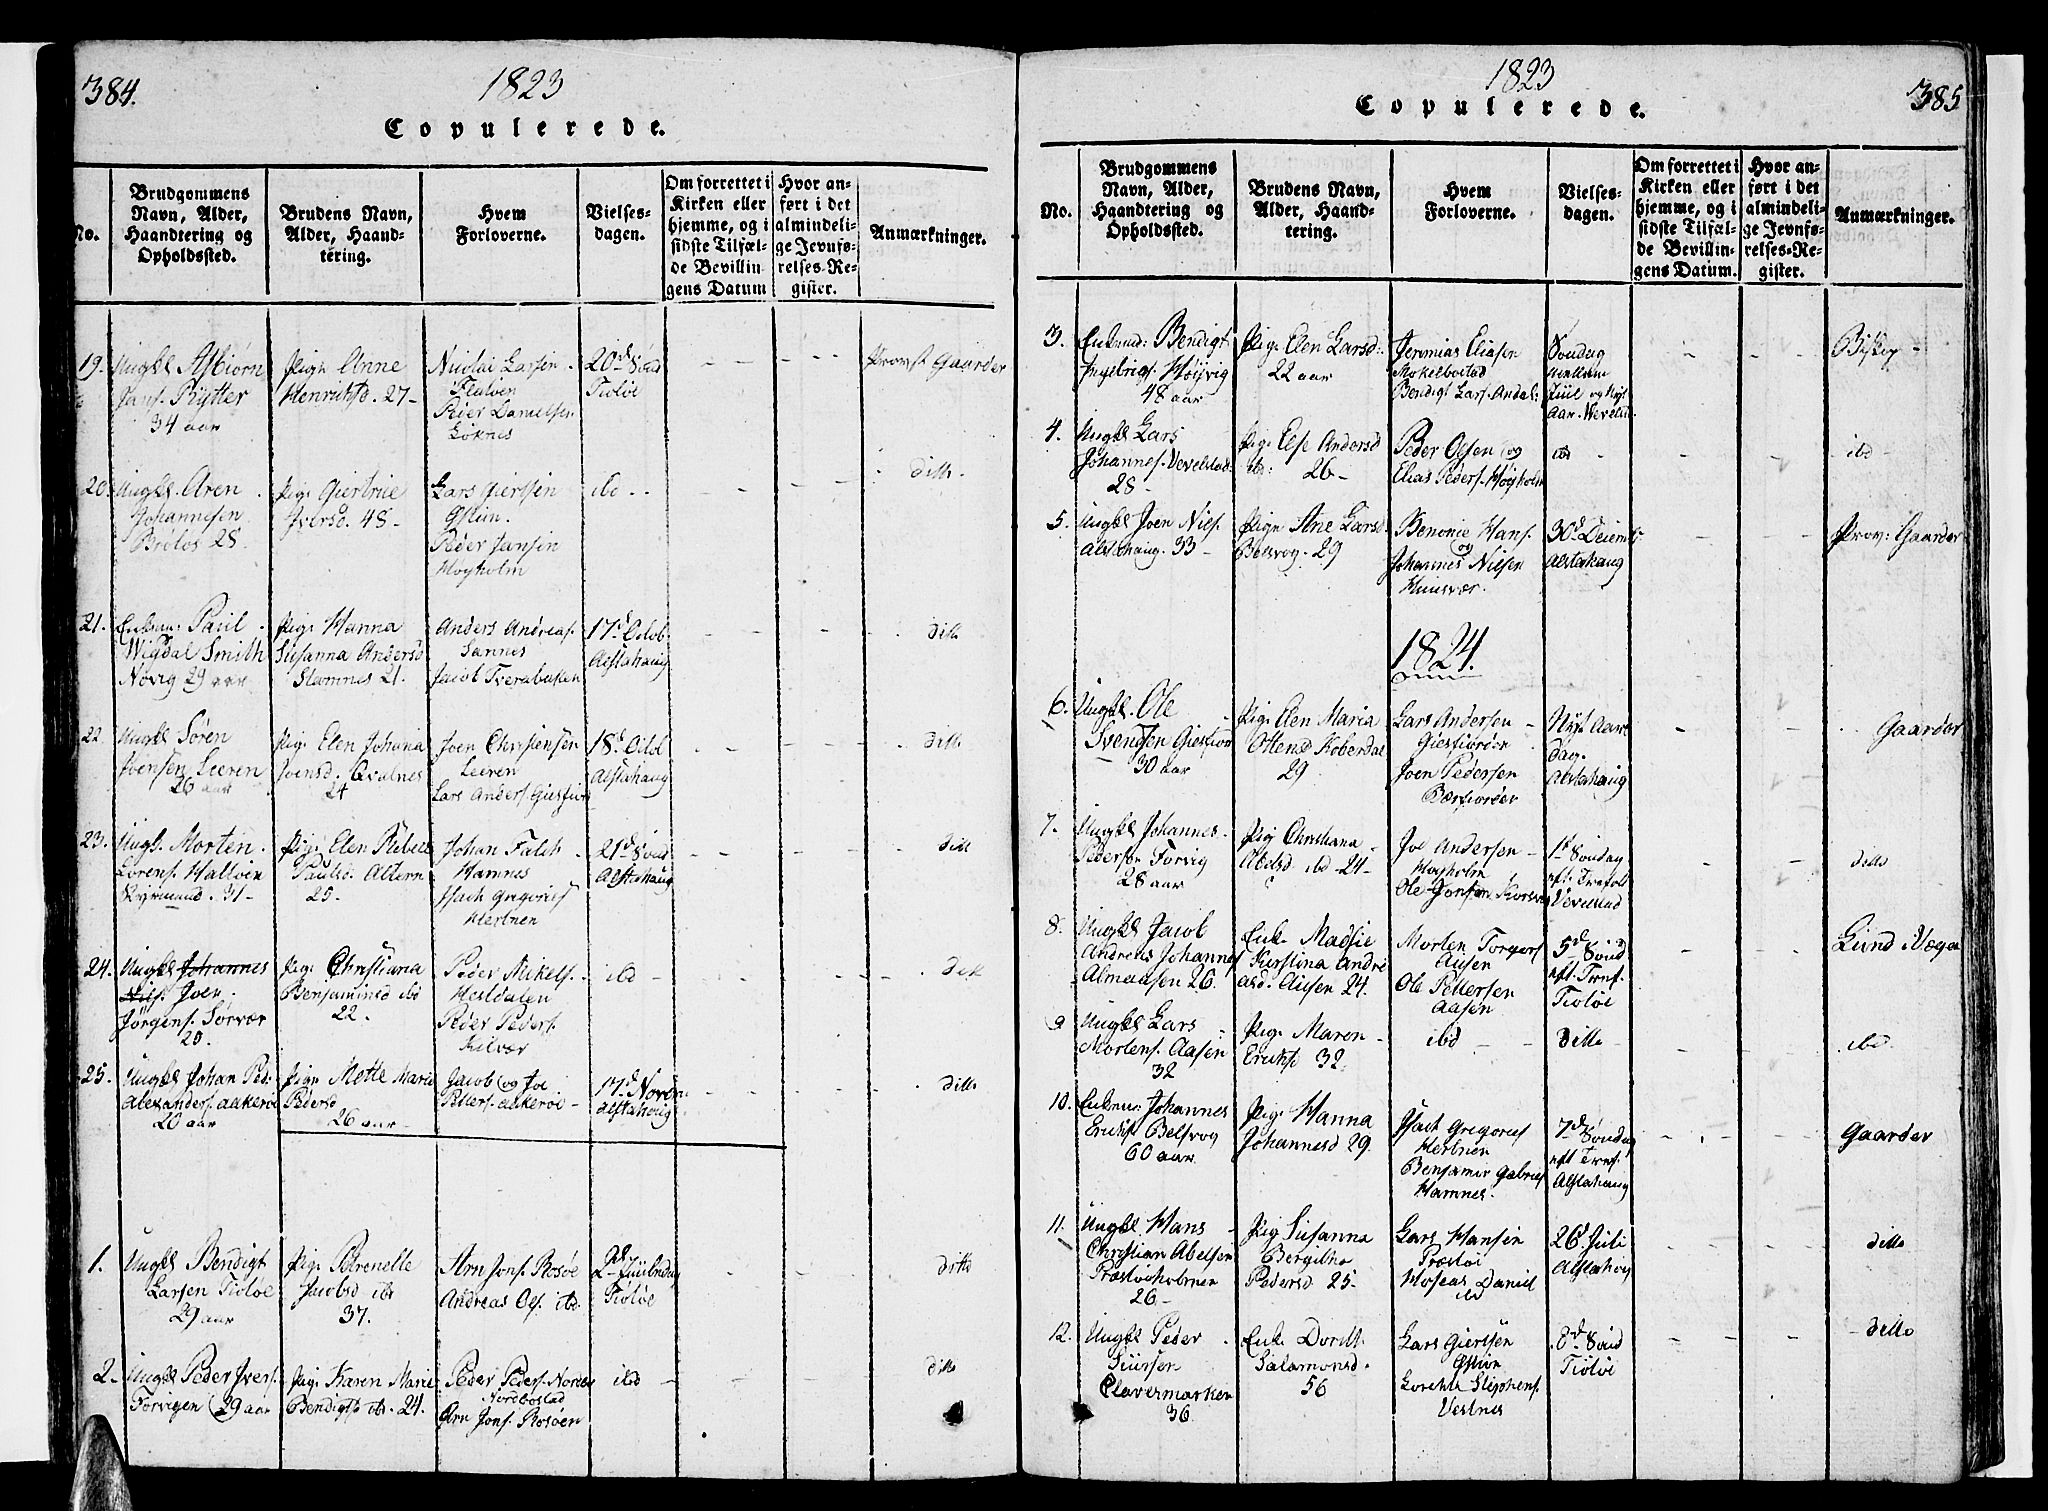 384.
1823
Copulerede.
No.
Brudgommens Navn, Alder, Haandtering og Opholdssted.
Brudens Navn, Alder, Haandtering.
Hvem Forloverne.
Vielsesdagen.
Om forrettet i Kirken eller hjemme, og i sidste Tilfælde Bevillingens Datum
Hvor anført i det almindelige Jevnførelses-Register.
Anmærkninger.
19. Ungkl Asbiørn Jans. Rytter 34 aar
Pign Anne Henriksd. 27-
Nicolai Larsen
Peder Danielsen Løknes
20d Sönd Tiøtøe
Provst Gaarder
20. Ungkl. Aren Johannesen 28.
Pig: Giertrue Iversd. 48-
Lars Giersen
Peder Jansen Høyholm
ibd
ditto
21. Enkm: Paul Wigdal Smith Növig 29 aar
Pig: Hanna Susanna Andersd Stamnes 21.
Anders Andreas. Sannes
Jacob Tverabakken
17d Octob. Alstahaug
ditto
22. Ungkl Sören Joensen Leeren 26 aar
Pig: Elen Johana Joensd. Qvalnes 24
Joen Christensen Leeren
Lars Anders.
18d Octob Alstahaug
ditto
23. Ungk. Morten Lorens. 31-
Pig: Elen Rebek Paulsd. Altern 25.
Johan Falch Hamnes
Isach Gregorius Herbnen
21d Sönd Alstahaug
ditto
24. Ungkl Johannes Niels. Joen Jörgens. Sörvær 25.
Pig: Christiana Benjaminsd ibd 22.
Peder Mikels. Hestdalen
Peder Peders. Kilvær
ibd
ditto
25. Ungkl Johan Ped: Alexanders. Aakerøe 20 aar
Pign Mette Marie Pedersd 26 aar
Jacob og Joe Petters. Aakerøe
17d Novem Alstahaug
ditto
1. Ungkl Bendigt Larsen Tiøtøe 29 aar
Pig: Pernelle Jacobsd ibd 37.
Arn Jons. Rosøe
Andreas Ols. ibd
2d Juledag Tiøtøe
ditto
2. Ungkl Peder Ivers. Forvigen 29 aar
Pig: Karen Marie Bendigts. ibd. 24.
Peder Peders. Nordbostad
Arn Jons. Rosøen
ibd
ditto
1823
385
Copulerede.
No.
Brudgommens Navn, Alder, Haandtering og Opholdssted.
Brudens Navn, Alder, Haandtering.
Hvem Forloverne.
Vielsesdagen.
Om forrettet i Kirken eller hjemme, og i sidste Tilfælde Bevillingens Datum.
Hvor anført i det almindelige Jevnførelses-Register.
Anmærkninger.
3. Enkmd: Bendigt Ingebrigs. Høyvig 48 aar
Pig: Elen Larsd: 22 aar
Jermias Eliasen Mokelbostad
Bendigt Lars. Andal:
Söndag mellem Juul og Nyt Aar. Wevelst.
4. Ungkl Lars Johannes. Vevelstad. 28-
Pig: Else Andersd ib: 26-
Peder Olsen og Elias Peders. Høyholm
ibd
ibd
5. Ungkl Joen Niels. Alstahaug. 33-
Pign Ane Larsd. Belsvog. 29
Benonie Hans. og Johannes Nielsen
30d Decemb. Alstahaug
Prov: Gaarder
1824.
6. Ungkl. Ole Svendsen Giesfiord 30 aar
Pig: Elen Maria Ottensd Koberdal 29
Lars Andersen Giesfiorden
Joen Pedersen Bærfiorden
Nyt Aars Dag. Alstahaug
Gaarder
7. Ungkl Johannes Pedersen Forvig 28 aar
Pig Christiana Abelsd ibd 24-
Joe Andersen Høyholm
Ole Jonsen
1st Söndag eft: Trefold Vevelstad
ditto
8. Ungkl Jacob Andreas Johannes Almaasen 26.
Enk. Madsie Kirstina Andreasd. Ausen 24.
Morten Torgers Ausen
Ole Pettersen Aasen
5d Sönd eft: Trnf. Tiøtøe
Lund i Vega
9 Ungkl Lars Mortens. Aasen 32
Pig: Maren Eriksd 32.
ibd
ditto
ibd.
10. Enkm: Johannes Eriks. Belsvog 60 aar.
Pig: Hanna Johannesd 29.
Isach Gregorius Herbnen
Benjamin Gabriels Hamnes.
7d Söndag eft Trnf. Alstahaug
Gaarder
11. Ungkl Hans Christian Abelsen Præstøeholmen 26-
Pig Susanna Bergitha Pedersd 25-
Lars Hansen Præstøe
Hoseas Daniel ibd
26d Juli Alstahog
ditto
12. Ungkl Peder Siursen Clavermarken 36.
Enk. Dordt. Salamonsd. 56
Lars Giersen
Stephens. Vestnes
8d Sönd Tiøtøe
ditto